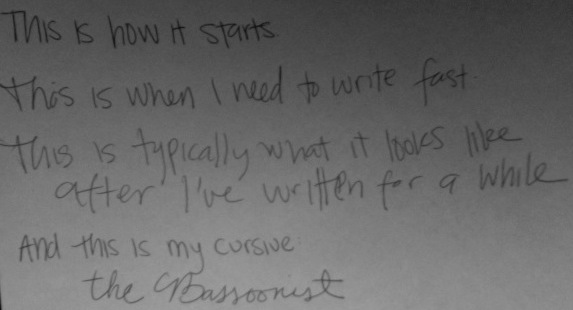 This is how it starts.
This is when I need to write fast.
This is typically what it looks like
after I've written for a while
And this is my cursive:
the Bassoonist